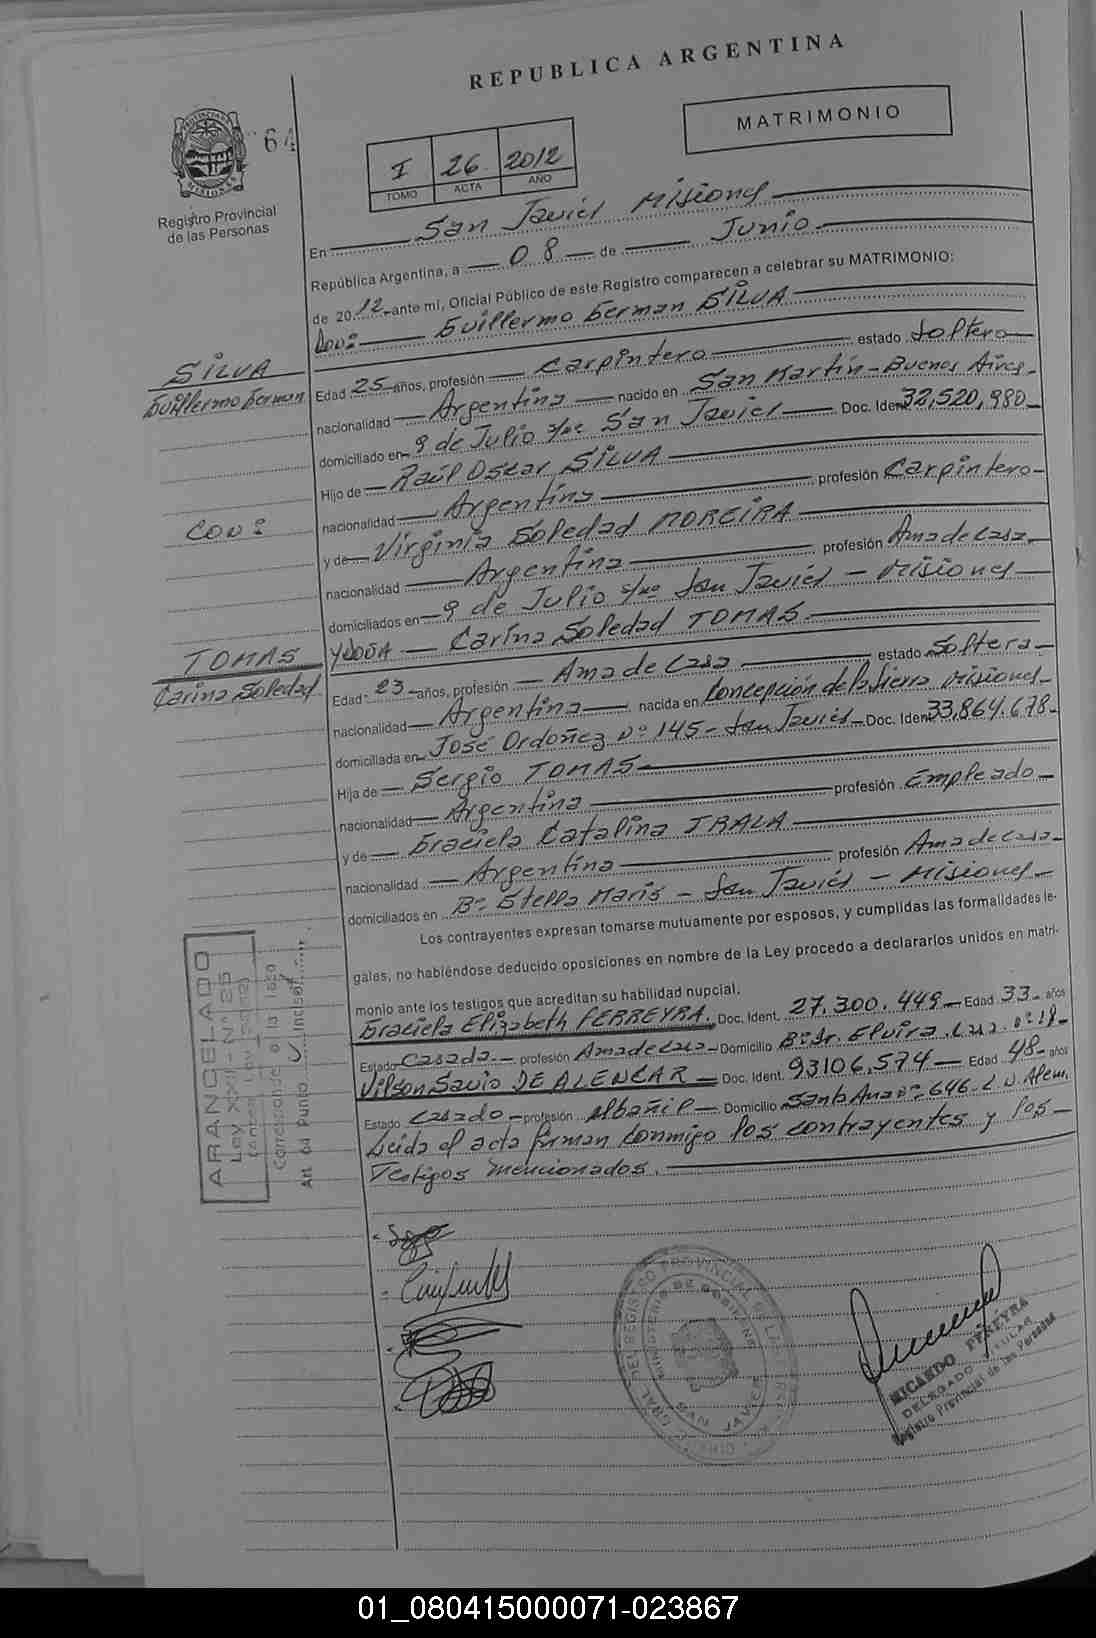 REPUBLICA ARGENTINA
MATRIMONIO
64
I 26 2012
TOMO ACTA AÑO
Registro Provincial
de las Personas
En San Javier Misiones
República Argentina, a 08 de Junio
de 2012 ante mí, Oficial Público de este Registro comparecen a celebrar su MATRIMONIO:
Don: Guillermo German SILVA
SILVA
Guillermo German
Edad 25 años, profesión Carpintero estado Soltero
nacionalidad Argentina nacido en San Martín - Buenos Aires
domiciliado en 9 de Julio s/nº San Javier Doc. Ident. 32.520.980
Hijo de Raúl Oscar SILVA
nacionalidad Argentina profesión Carpintero
Con:
y de Virginia Soledad MOREIRA
nacionalidad Argentina profesión Ama de casa
domiciliados en 9 de Julio s/nº San Javier - Misiones
TOMAS
Carina Soledad
Y DOÑA Carina Soledad TOMAS
Edad 23 años, profesión Ama de Casa estado Soltera
nacionalidad Argentina nacida en Concepción de la Sierra Misiones
domiciliada en José Ordoñez Nº 145 - San Javier Doc. Ident. 33.864.678
Hija de Sergio TOMAS
nacionalidad Argentina profesión Empleado
y de Graciela Catalina IRALA
nacionalidad Argentina profesión Ama de casa
domiciliados en Bº Stella Maris - San Javier - Misiones
Los contrayentes expresan tomarse mutuamente por esposos, y cumplidas las formalidades le-
gales, no habiéndose deducido oposiciones en nombre de la Ley procedo a declararlos unidos en matri-
monio ante los testigos que acreditan su habilidad nupcial.
Graciela Elizabeth FERREYRA. Doc. Ident. 27.300.449 Edad 33 años
Estado Casada profesión Ama de casa Domicilio Bº Sr. Elvira Casa nº 18
Vilson Savio DE ALENCAR Doc. Ident. 93106.574 Edad 48 años
Estado Casado profesión Albañil Domicilio Santa Ana nº 646 L.N. Alem.
Leida el acta firman conmigo los contrayentes y los
Testigos mencionados.
ARANCELADO
Ley XXII - Nº 25
Corresponde a la Tasa
Art. 64 Punto V Inciso
MINISTERIO DE GOBIERNO
SAN JAVIER
RICARDO PEREYRA
DELEGADO TITULAR
Registro Provincial de las Personas
01_080415000071-023867